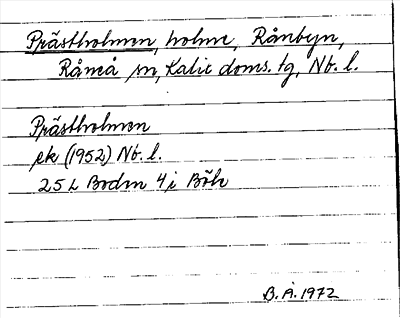 Prästholmen, holme, Rånbyn,
Råneå sn, Kalix doms. tg, Nb. l.
Prästholmen
ek (1952) Nb. l.
25 L Boden 4 i Böle
B.Å. 1972